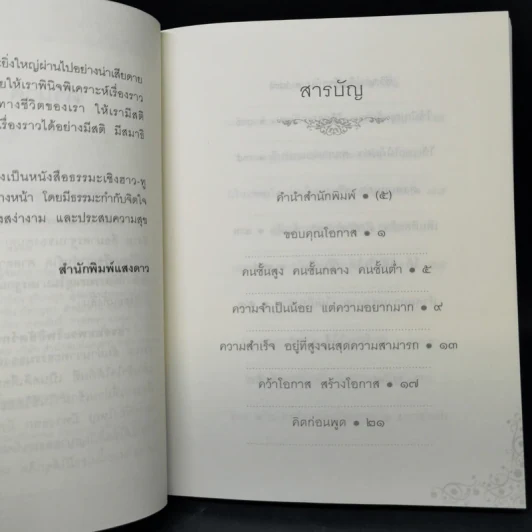 ยิ่งใหญ่ผ่านไปอย่างน่าเสียดาย
ให้เราพินิจพิเคราะห์เรื่องราว
ทางชีวิตของเรา ให้เรามีสติ
เรื่องราวได้อย่างมีสติ มีสมาธิ
เป็นหนังสือธรรมะเชิงฮาว-ทู
หน้า โดยมีธรรมะกำกับจิตใจ
สง่างาม และประสบความสุข
สำนักพิมพ์แสงดาว
สารบัญ
คำนำสำนักพิมพ์ ● (๕)
ขอบคุณโอกาส ● ๑
คนชั้นสูง คนชั้นกลาง คนชั้นต่ำ ● ๕
ความจำเป็นน้อย แต่ความอยากมาก ● ๙
ความสำเร็จ อยู่ที่สูงจนสุดความสามารถ ● ๑๓
คว้าโอกาส สร้างโอกาส ● ๑๗
คิดก่อนพูด ● ๒๑